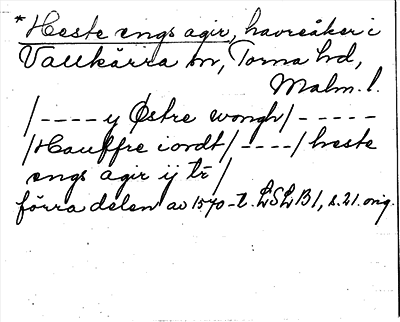 *Heste engs agir, havreåker i
Vallkärra sn, Torna hd,
Malm. l.
/---- y Østre wongh/-----
/Hauffre iordt/----/heste
engs agir ij tr /
förra delen av 1570-t. LSLB1, s. 21. orig.